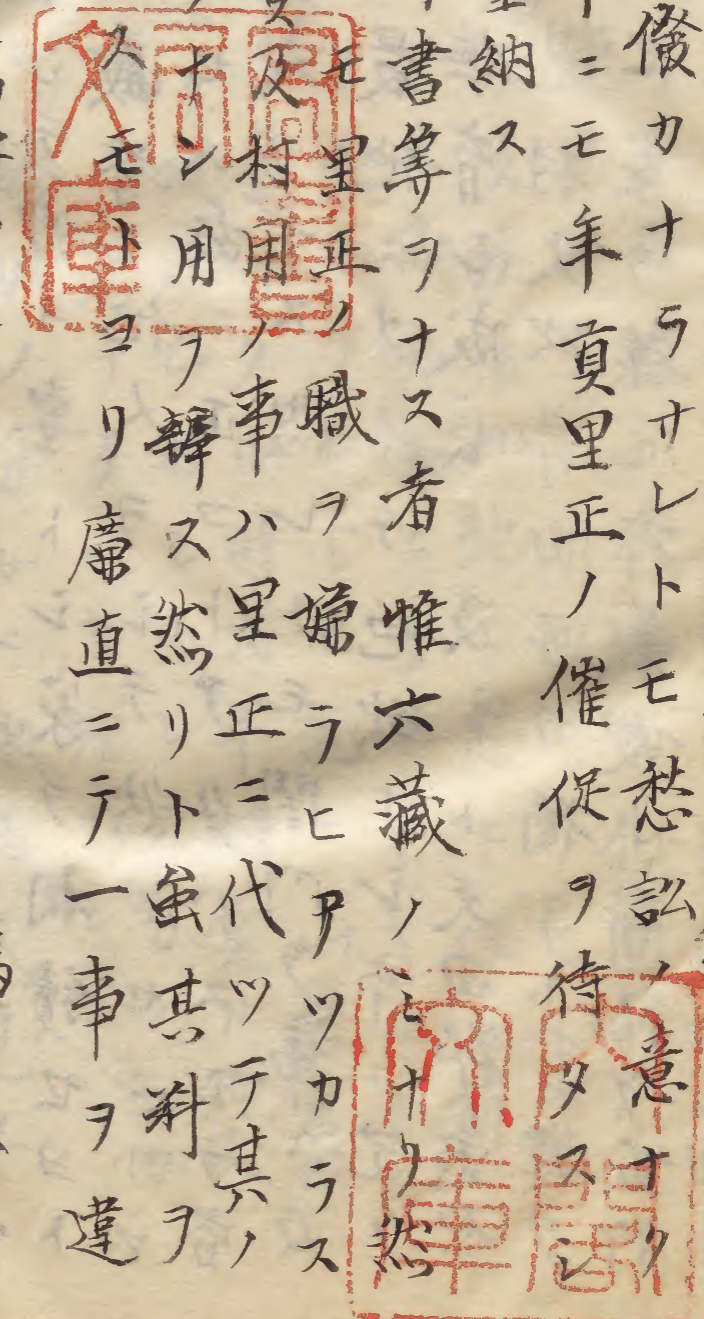 儉カナラサレトモ愁訟ノ意ナク
ニモ年貢里正ノ催促ヲ待タスシ
納ス
書等ヲナス者惟六藏ノミナリ然
モ里正ノ職ヲ嫌ラヒアツカラス
ス及村用ノ事ハ里正ニ代ツテ其ノ
ナシ用ヲ辨ス然リト虽其料ヲ
スモトヨリ廉直ニテ一事ヲ違
文庫
内閣
文庫